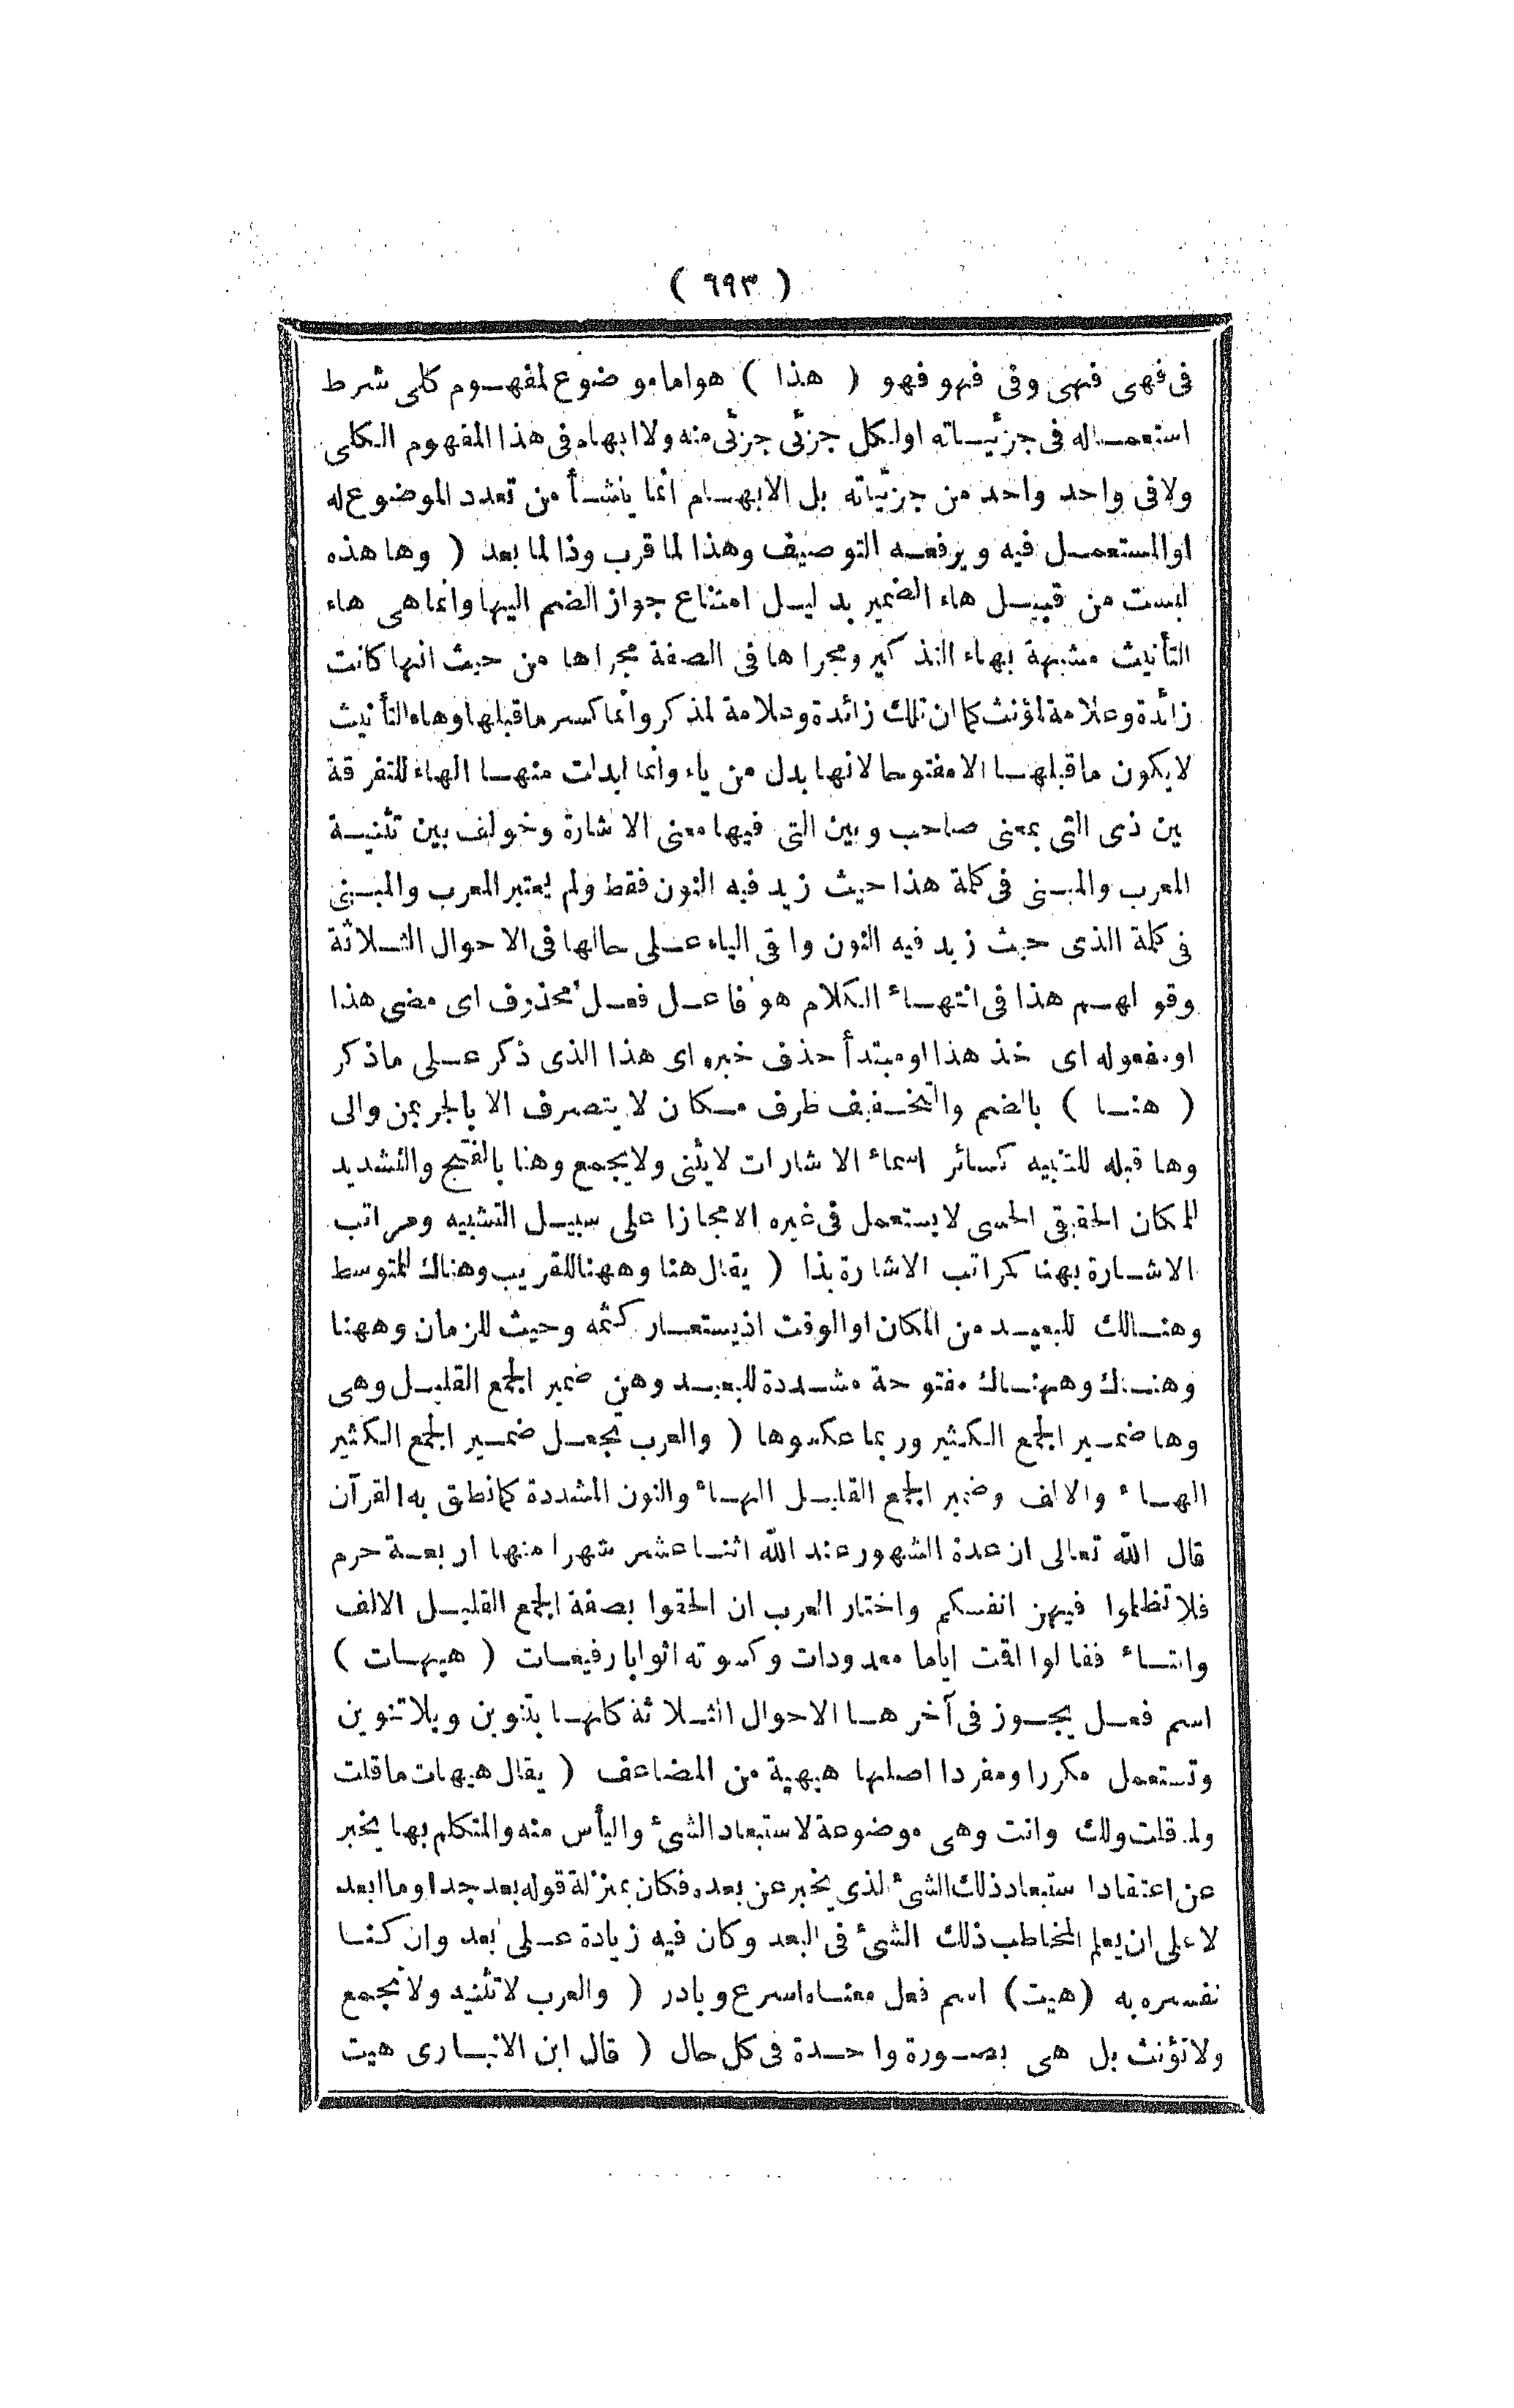 ( ٦٩٣ )
فى فهى فهى وفى فهو فهو ( هذا ) هو اما موضوع لمفهوم كلى شرط
استعماله فى جزئياته او لكل جزئى جزئى منه ولا ابهام فى هذا المفهوم الكلى
ولا فى واحد واحد من جزئياته بل الابهام انما ينشأ من تعدد الموضوع له
او المستعمل فيه و يرفعه التوصيف وهذا لما قرب وذا لما بعد ( وها هذه
ليست من قبيل هاء الضمير بدليل امتناع جواز الضم اليها وانما هى هاء
التأنيث مشبهة بهاء التذكير ومجراها فى الصفة مجراها من حيث انها كانت
زائدة وعلامة لمؤنث كما ان تلك زائدة وعلامة لمذكر وانما كسر ما قبلها وهاء التأنيث
لا يكون ما قبلها الا مفتوحا لانها بدل من ياء وانما ابدلت منها الهاء للتفرقة
بين ذى التى بمعنى صاحب و بين التى فيها معنى الاشارة وخولف بين تثنية
المعرب والمبنى فى كلمة هذا حيث زيد فيه النون فقط ولم يعتبر المعرب والمبنى
فى كلمة الذى حيث زيد فيه النون وابقى الياء على حالها فى الاحوال الثلاثة
وقولهم هذا فى انتهاء الكلام هو فاعل فعل محذوف اى مضى هذا
او مفعوله اى خذ هذا او مبتدأ حذف خبره اى هذا الذى ذكر على ما ذكر
( هنا ) بالضم والتخفيف ظرف مكان لا يتصرف الا بالجر بمن والى
وها قبله للتنبيه كسائر اسماء الاشارات لا يثنى ولا يجمع وهنا بالفتح والتشديد
للمكان الحقيقى الحسى لا يستعمل فى غيره الا مجازا على سبيل التشبيه ومراتب
الاشارة بهنا كمراتب الاشارة بذا ( يقال هنا وههنا للقريب وهناك للمتوسط
وهنالك للبعيد من المكان او الوقت اذ يستعار كثمه وحيث للزمان وههنا
وهناك وههناك مفتوحة مشددة للبعيد وهن ضمير الجمع القليل وهى
وها ضمير الجمع الكثير وربما عكسوها ( والعرب تجعل ضمير الجمع الكثير
الهاء والالف وضمير الجمع القليل الهاء والنون المشددة كما نطق به القرآن
قال الله تعالى ان عدة الشهور عند الله اثنا عشر شهرا منها اربعة حرم
فلا تظلموا فيهن انفسكم واختار العرب ان الحقوا بصفة الجمع القليل الالف
والتاء فقالوا اقت اياما معدودات وكسوته اثوابا رفيعات ( هيهات )
اسم فعل يجوز فى آخرها الاحوال الثلاثة كلها بتنوين وبلا تنوين
وتستعمل مكررا ومفردا اصلها هيهية من المضاعف ( يقال هيهات ما قلت
ولما قلت ولك وانت وهى موضوعة لاستبعاد الشئ واليأس منه والمتكلم بها يخبر
عن اعتقاد استبعاد ذلك الشئ الذى يخبر عن بعده فكان بمنزلة قوله بعد جدا وما ابعد
لا على ان يعلم المخاطب ذلك الشئ فى البعد وكان فيه زيادة على بعد وان كنا
نفسره به ( هيت ) اسم فعل معناه اسرع وبادر ( والعرب لا تثنيه ولا تجمع
ولا تؤنث بل هى بصورة واحدة فى كل حال ( قال ابن الانبارى هيت